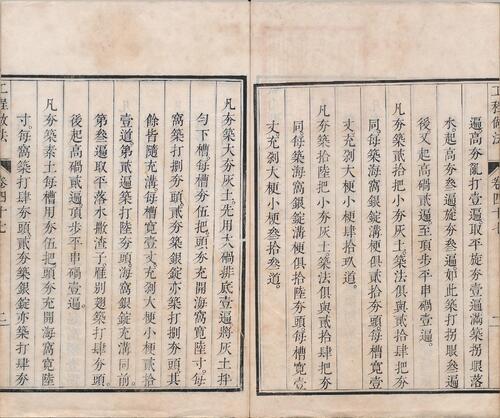 工程做法
卷四十七
遍高夯亂打壹遍滿築拐眼落
水。起高夯叁遍旋夯叁遍如此築打拐眼叁遍
後又起高硪貳遍至頂步平串硪壹遍。
凡夯築貳拾把小夯灰土築法俱與貳拾肆把夯
同。每築海窩銀錠溝梗俱貳拾夯頭每槽寬壹
丈充剁大梗小梗拾玖道。
凡夯築拾陸把小夯灰土築法俱與貳拾肆把夯
同。每築海窩銀錠溝梗俱拾陸夯頭每槽寬壹
丈充剁大梗小梗拾叁道。
凡夯築大夯灰土先用大硪排底壹遍將灰土拌
勻下槽每槽夯伍把頭夯充開海窩寬陸寸。每
窩築打捌夯頭貳夯築銀錠亦築打捌夯頭其
餘皆隨充溝每槽寬壹丈充剁大梗小梗貳拾
壹道第貳遍築打陸夯頭海窩銀錠充溝同前。
第叁遍取平落水撒渣子雁別翅築打肆夯頭。
後起高硪貳遍頂步平串硪壹遍。
凡夯築素土每槽用夯伍把頭夯充開海窩寬陸
寸。每窩築打肆夯頭貳夯築銀錠亦築打肆夯
工程做法
卷四十七
二